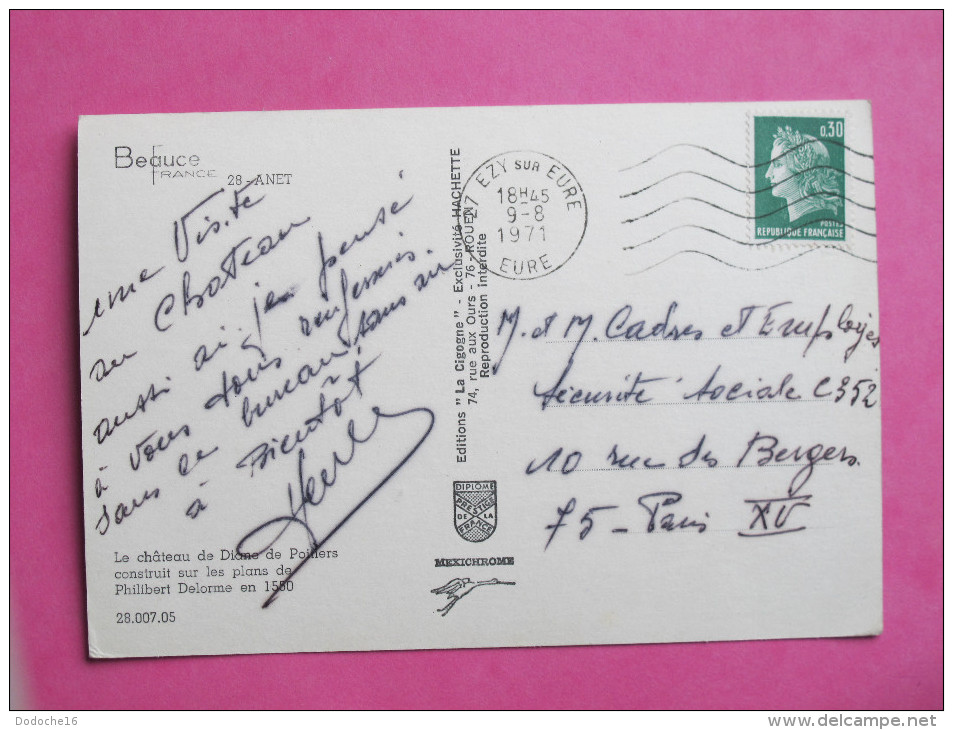 Beauce
FRANCE
28 - ANET
une Visite
au Chateau
aussi ai-je pensé
à vous tous renfermés
dans ce bureau sans air
à Bientôt
Le château de Diane de Poitiers
construit sur les plans de
Philibert Delorme en 1550
28.007.05
Editions "La Cigogne" - Exclusivité HACHETTE
74, rue aux Ours - 76 - ROUEN
Reproduction interdite
DIPLOME
PRESTIGE
DE LA
FRANCE
MEXICHROME
27 EZY SUR EURE
18H45
9-8
1971
EURE
0,30
POSTES
REPUBLIQUE FRANÇAISE
M. et M. Cadres et Employés
Sécurité Sociale C352
10 rue des Bergers.
75 - Paris XV
Dodoche16
www.delcampe.net